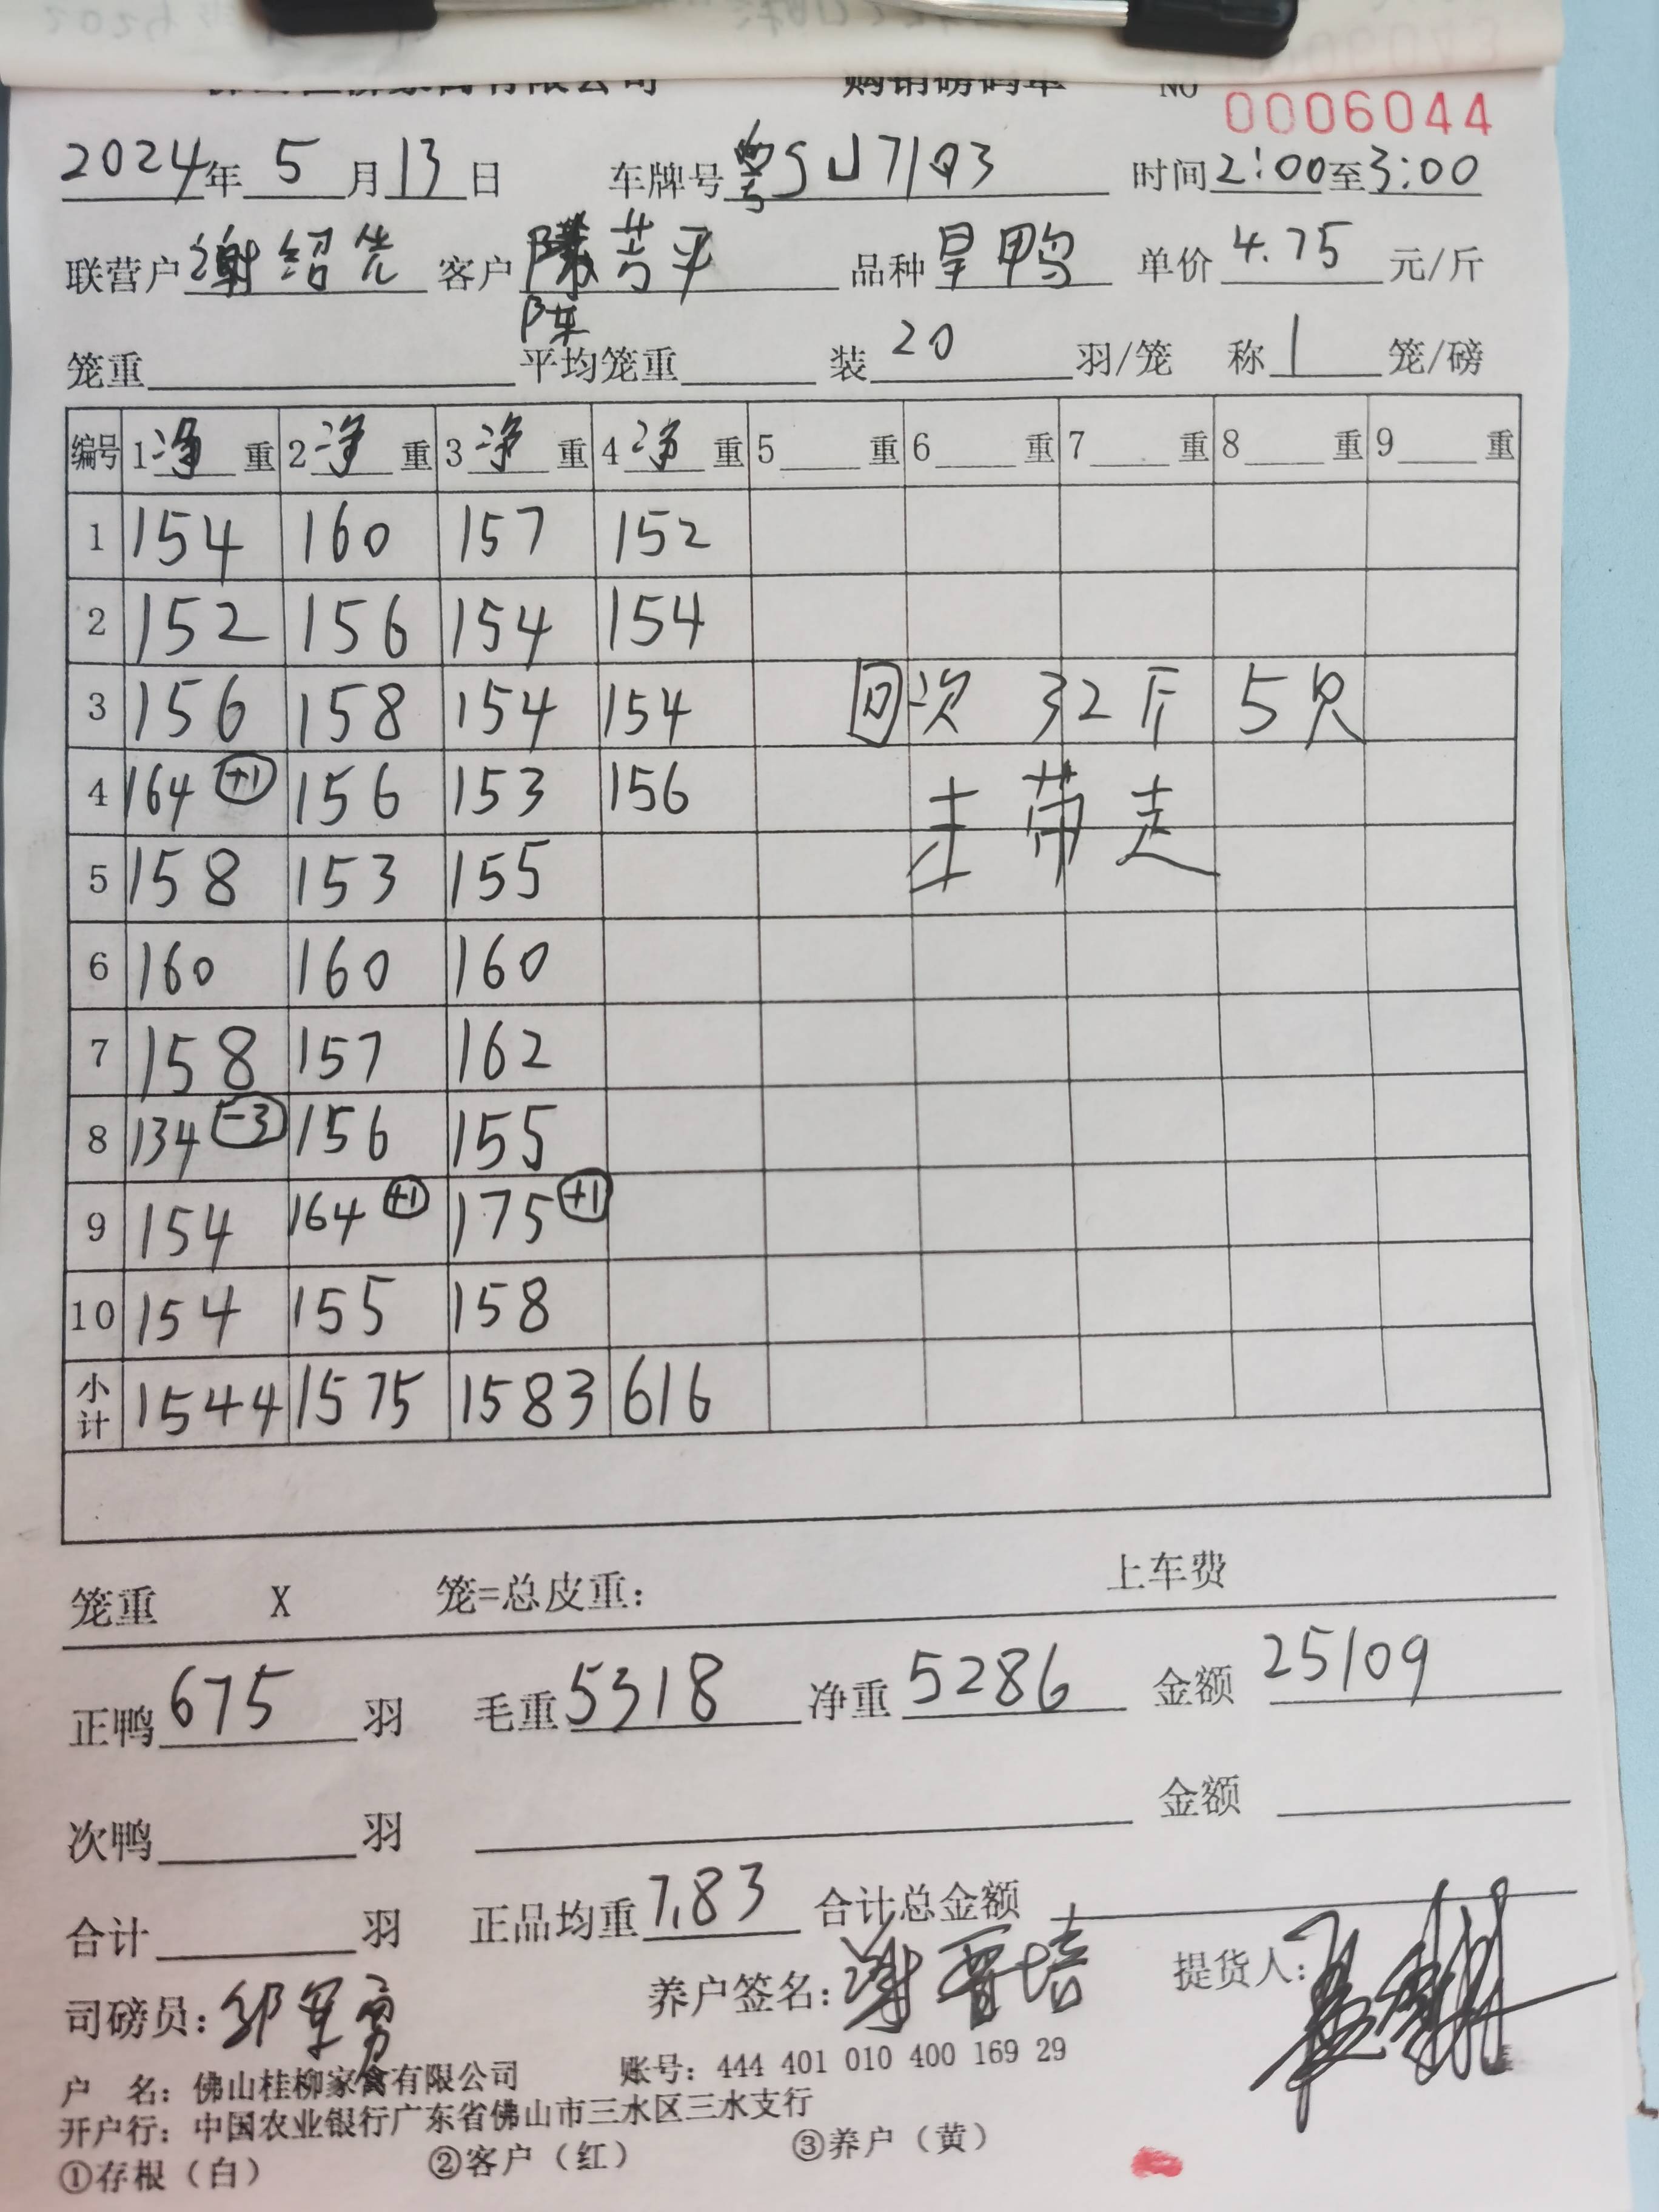 购销磅码单 NO 0006044
2024年 5 月 13 日 车牌号 粤 时间 2:00至3:00
联营户 谢绍先 客户 陈芳平 品种 旱鸭 单价 4.75 元/斤
陈
笼重 平均笼重 装 20 羽/笼 称 1 笼/磅
编号 1 净 重 2 净 重 3 净 重 4 净 重 5 重 6 重 7 重 8 重 9 重
1 154 160 157 152
2 152 156 154 154
3 156 158 154 154 回次 32斤 5只
4 164 +1 156 153 156 未带走
5 158 153 155
6 160 160 160
7 158 157 162
8 134 -3 156 155
9 154 164 +1 175 +1
10 154 155 158
小计 1544 1575 1583 616
笼重 X 笼=总皮重: 上车费
正鸭 675 羽 毛重 5318 净重 5286 金额 25109
次鸭 羽 金额
合计 羽 正品均重 7.83 合计总金额
司磅员: 养户签名: 提货人:
户 名: 佛山桂柳家禽有限公司 账号: 444 401 010 400 169 29
开户行: 中国农业银行广东省佛山市三水区三水支行
①存根（白） ②客户（红） ③养户（黄）